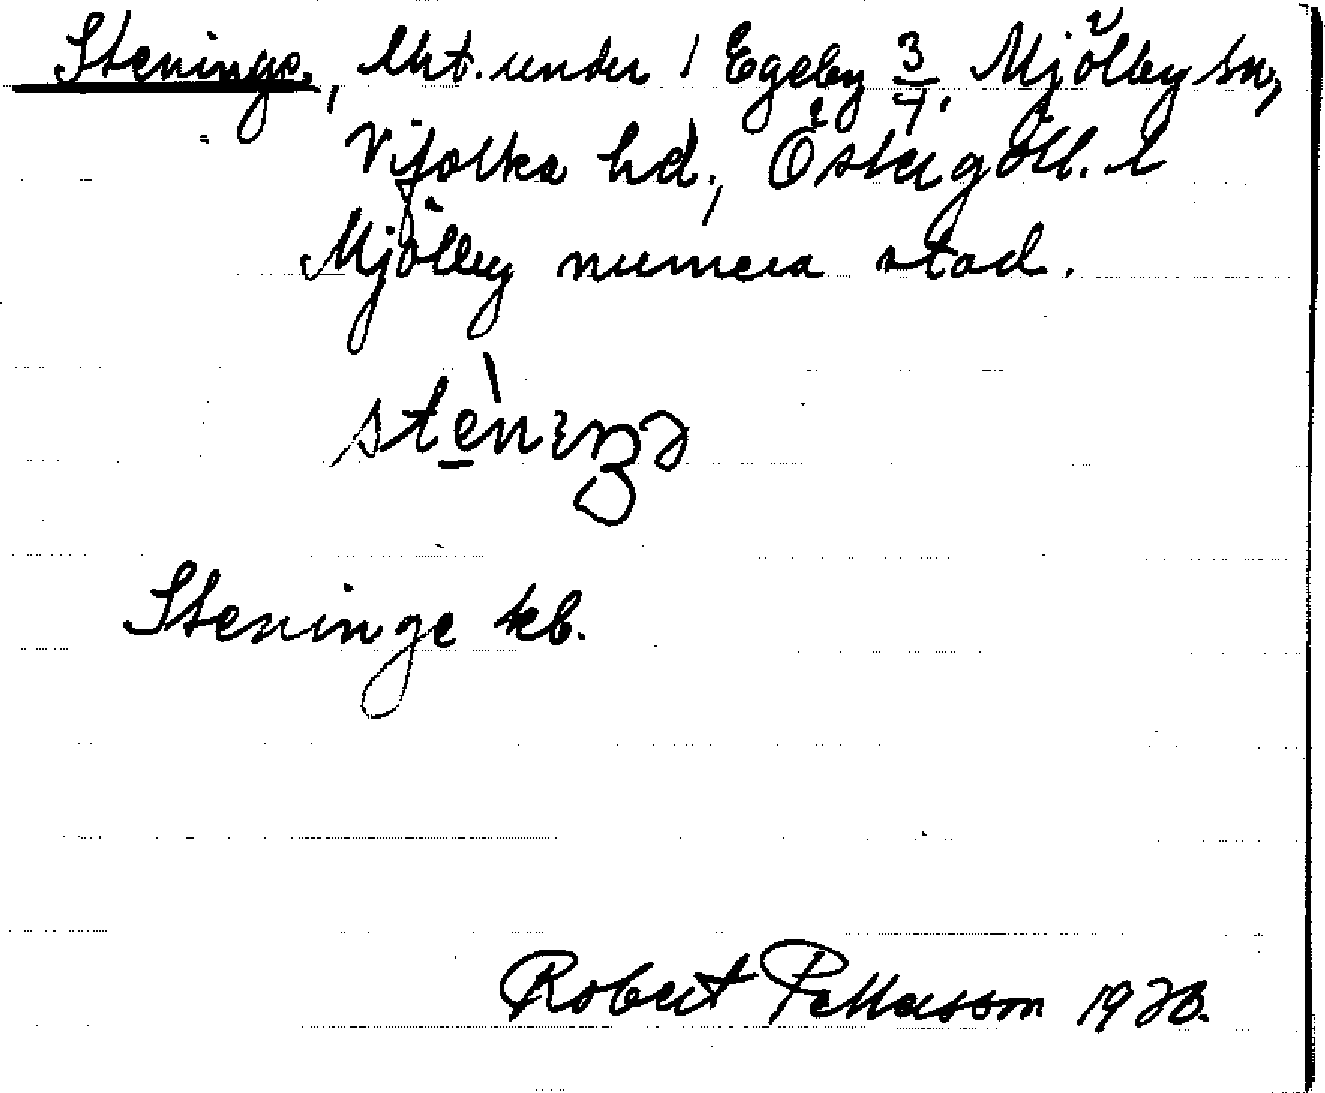 Steninge, lht. under 1 Egeby 3/4. Mjölby sn,
Vifolka hd., Östergötl. l
Mjölby numera stad.
stèniŋə
Steninge kb.
Robert Pettersson 1920.